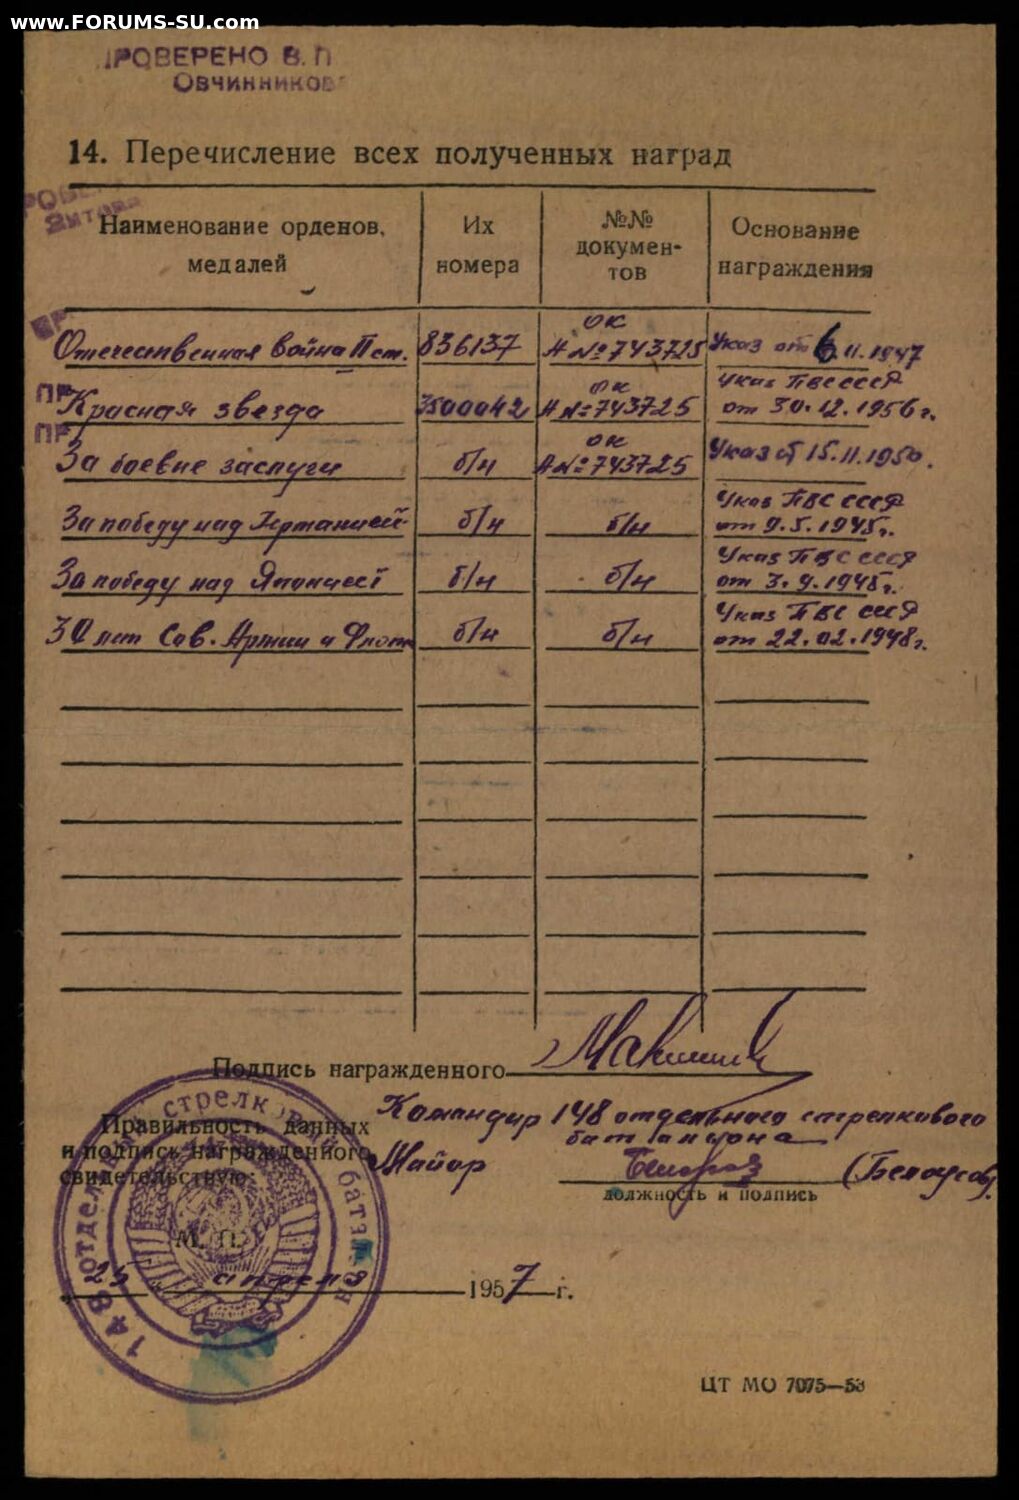 www.FORUMS-SU.com
ПРОВЕРЕНО В.П.
Овчинникова
14. Перечисление всех полученных наград
Наименование орденов, медалей
Их номера
№№ документов
Основание награждения
Отечественная война II ст. 836137 ОК А №743725 Указ от 6.11.1947
ПР
Красная звезда 3500042 ОК А №743725 Указ ПВС СССР от 30.12.1956г.
ПР
За боевые заслуги б/н ОК А №743725 Указ от 15.11.1950.
За победу над Германией б/н б/н Указ ПВС СССР от 9.5.1945г.
За победу над Японией б/н б/н Указ ПВС СССР от 3.9.1945г.
30 лет Сов. Армии и Флота б/н б/н Указ ПВС СССР от 22.02.1948г.
Подпись награжденного
Правильность данных
и подпись награжденного
свидетельствую:
Командир 148 отдельного стрелкового
батальона
Майор (Белоусов).
должность и подпись
М. П.
25 апреля 1957 г.
148 отдельный стрелковый батальон
ЦТ МО 7075—53